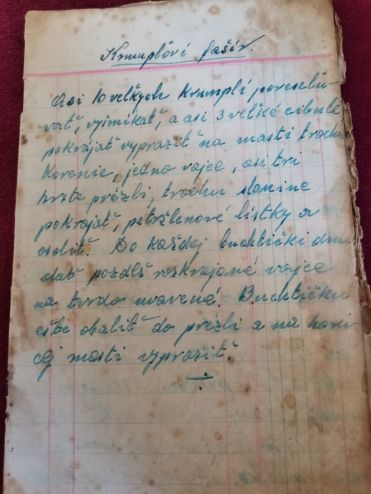 Krumplóvi fašír.
Asi 10 veľkych krumplí, poreselú
vať, vyjimikať, a asi 3 veľké cibule
pokrájať vypražiť na masti trochu
korenie, jedno vajce, asi tri
hrste prézbli, trochu slanine
pokrájať, petržlenové lístky a
osoliť. Do každej buchtički dnu
dať pozdlš rozkrajané vajce
na tvrdo uvarené. Buchtičku
ešte obaliť do prézli a na horú
cej masti vypražiť.